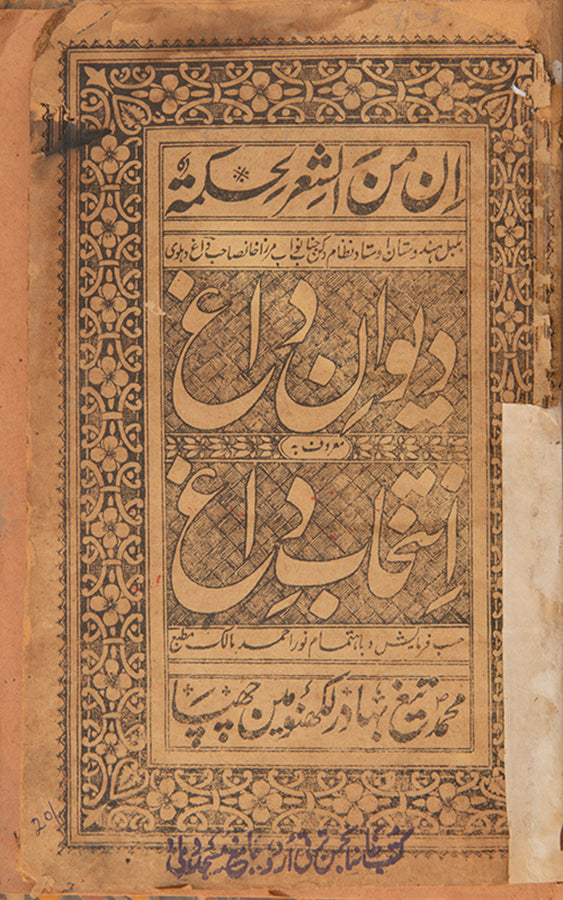 اِن مِنَ الشِعرِ لحِکمۃ
بلبل ہندوستان استاد نظام دکن جناب نواب مرزا خانصاحب داغ دہلوی
دیوانِ داغ
معروف بہ
اِنتخابِ داغ
حسب فرمایش و باہتمام نور احمد مالک مطبع
محمد تیغ بہادر لکھنؤ مین چھپا
کتب خانہ انجمن ترقی اردو جامع مسجد دہلی
201